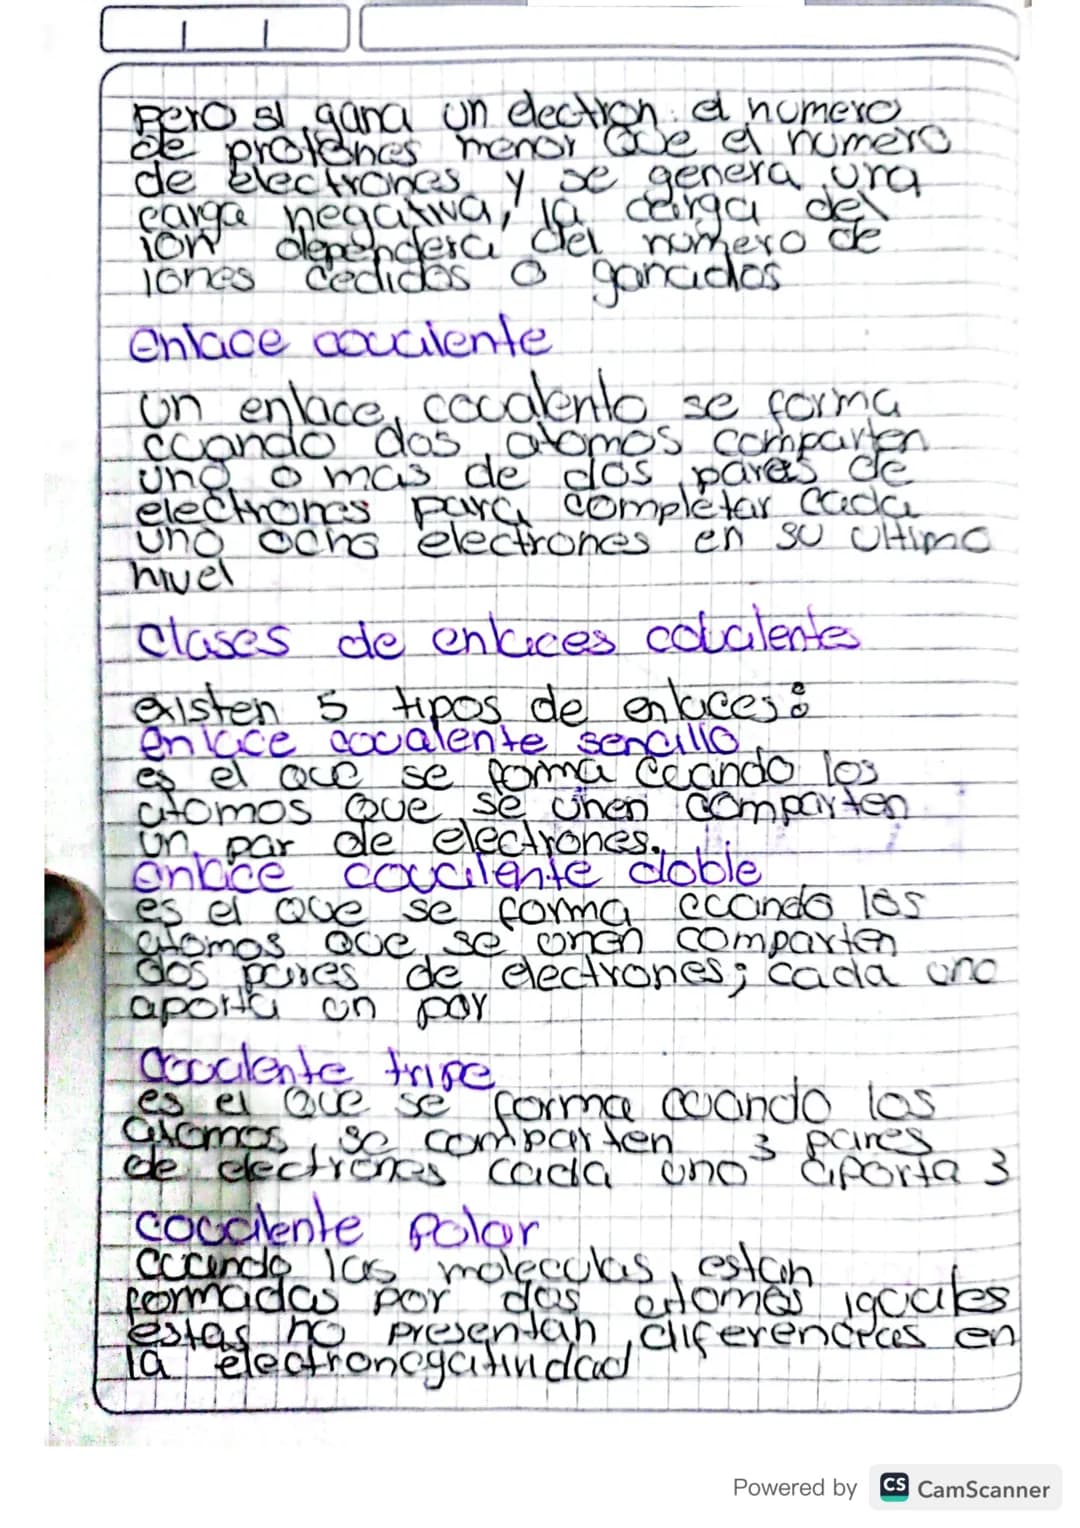 pero si gana un electron. el numero
de protones menor que el numero
de electrones y se genera una
carga negativa, la carga del
ion dependera del numero de
iones cedidos o ganados
Enlace covalente
un enlace covalento se forma
cuando dos atomos comparten
uno o mas de dos pares de
electrones para completar cada
uno ocho electrones en su ultimo
nivel
Clases de enlaces covalentes
existen 5 tipos de enlaces:
enlace covalente sencillo
es el que se forma cuando los
atomos que se unen comparten
un par de electrones.
enlace covalente doble
es el que se forma cuando los
atomos que se unen comparten
dos pares de electrones; cada uno
aporta un par
covalente tripe
es el que se forma cuando los
atomos se comparten 3 pares
de electrones cada uno aporta 3
covalente Polar
cuando las moleculas estan
formadas por dos atomos iguales
estas no presentan diferencias en
la electronegatividad
Powered by CS CamScanner